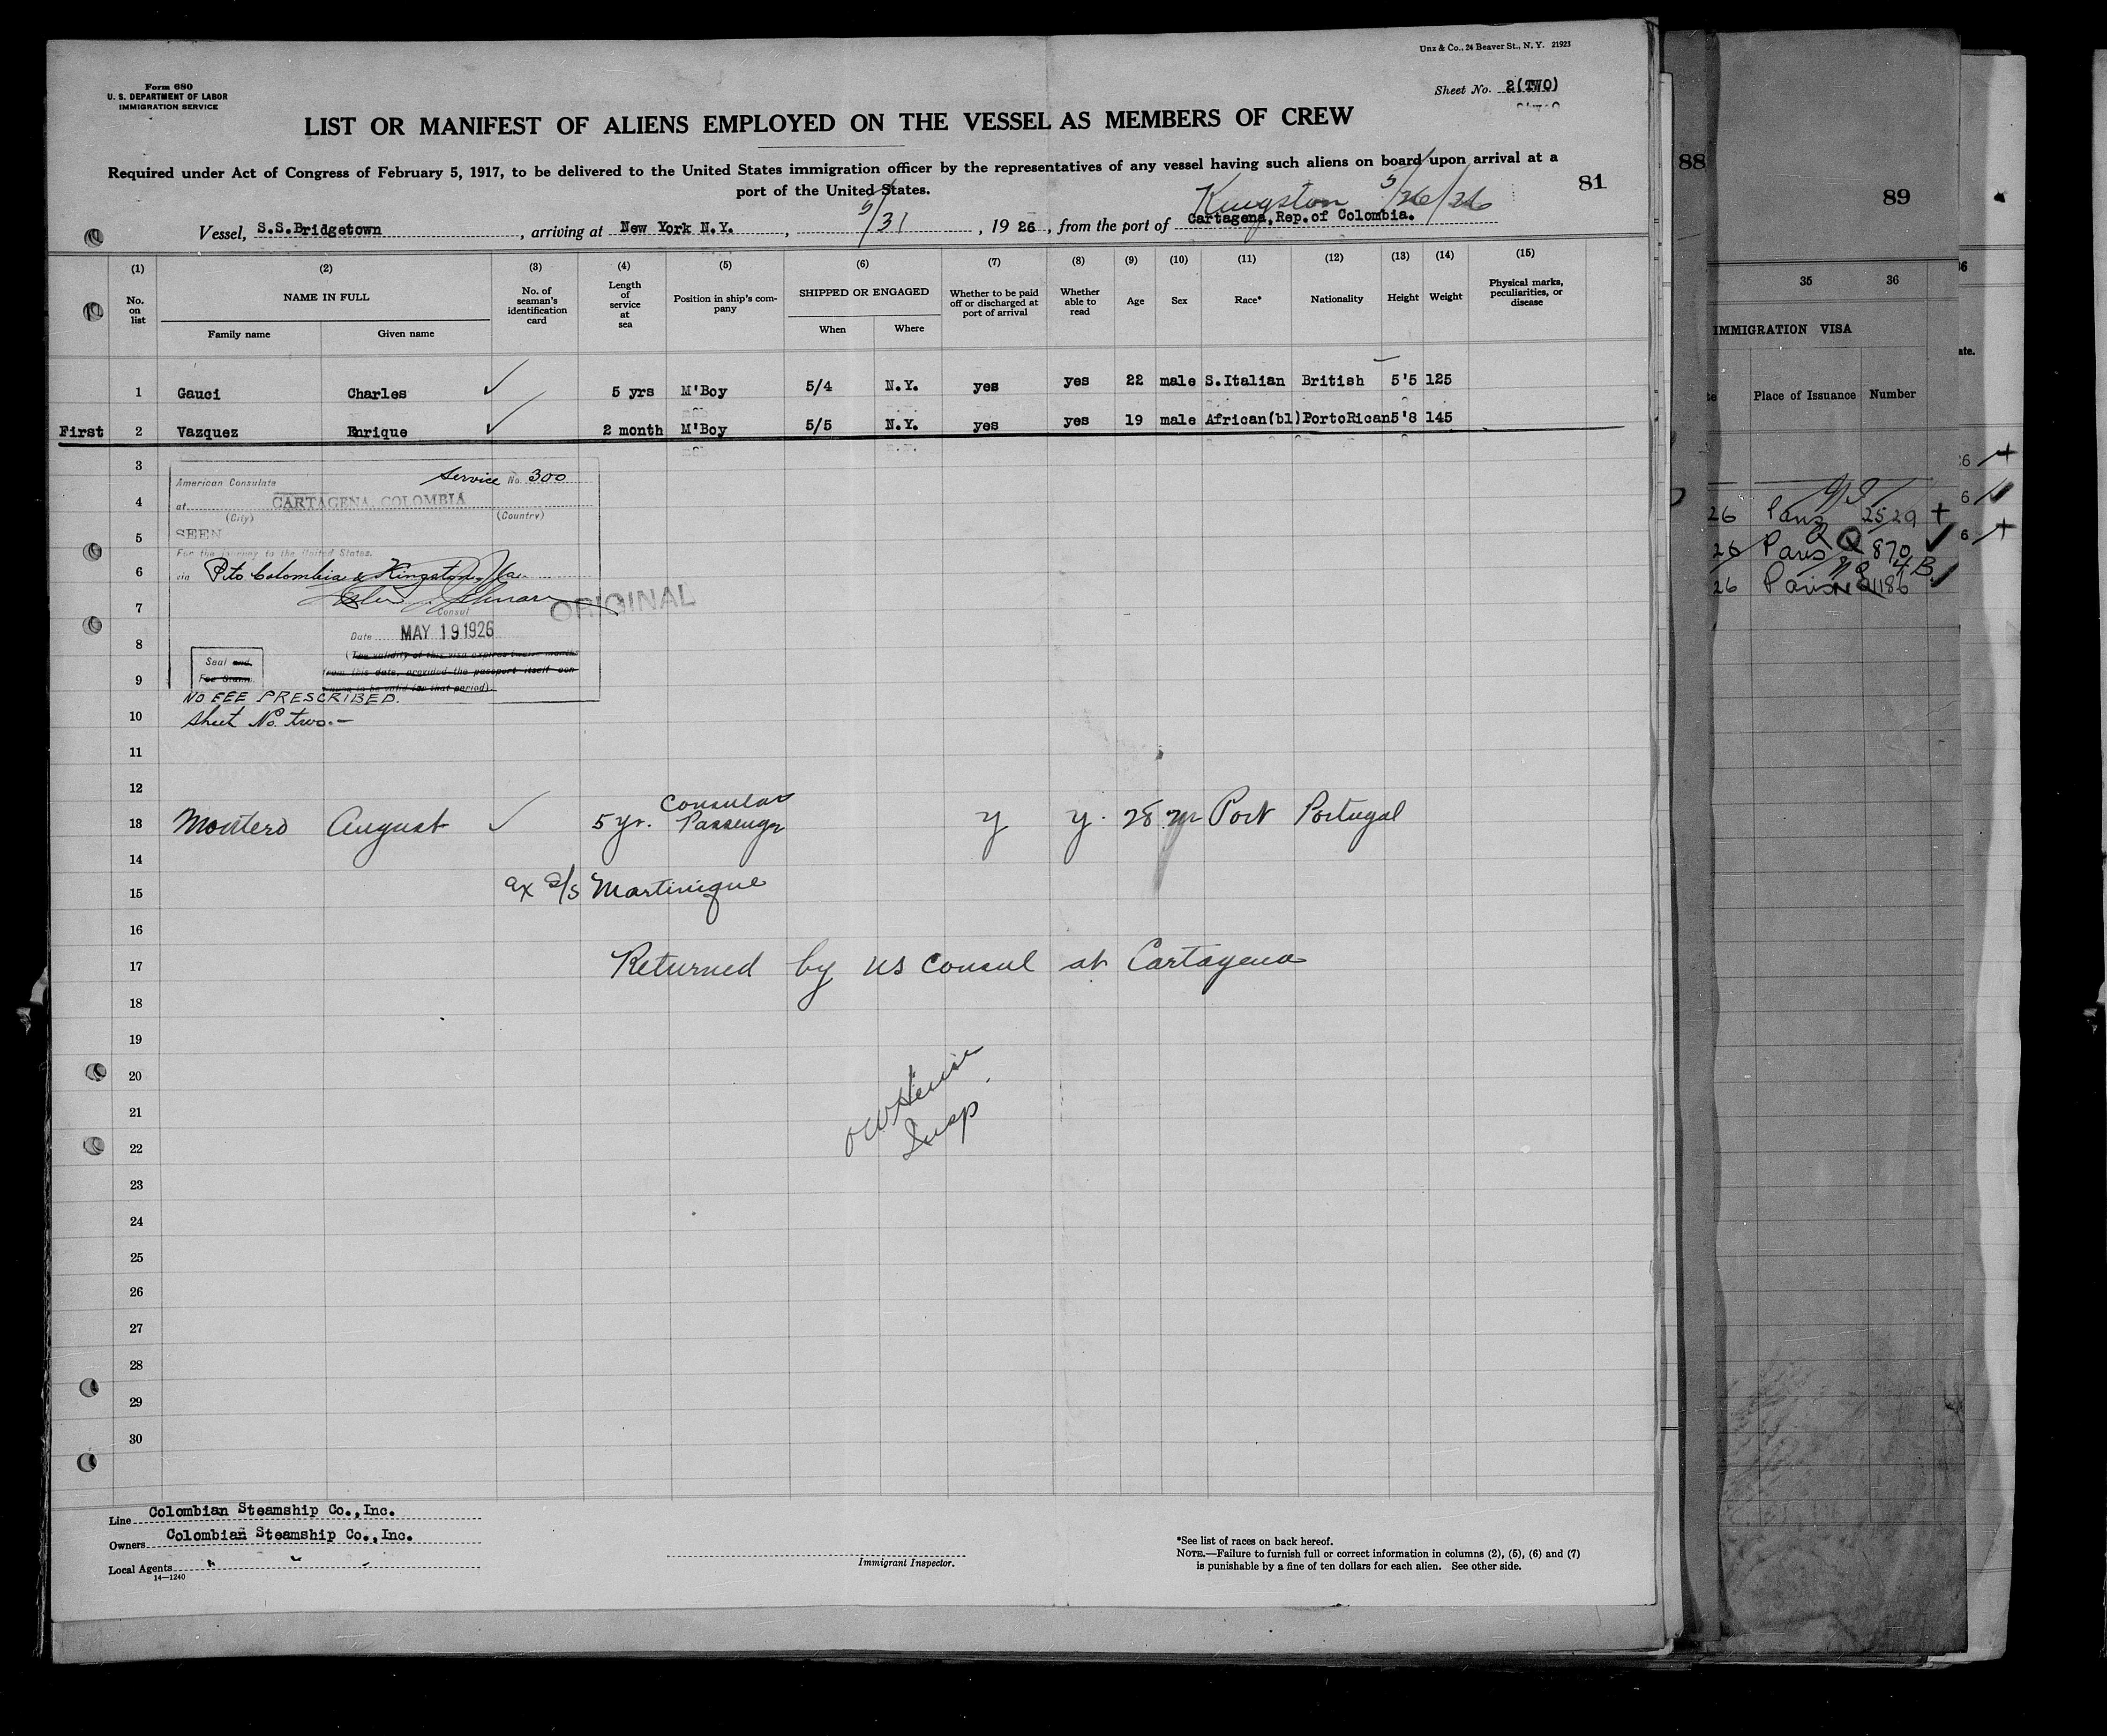 Unz & Co., 24 Beaver St., N. Y. 21923
Form 680
U. S. DEPARTMENT OF LABOR
IMMIGRATION SERVICE
Sheet No. 2(TWO)
LIST OR MANIFEST OF ALIENS EMPLOYED ON THE VESSEL AS MEMBERS OF CREW
Required under Act of Congress of February 5, 1917, to be delivered to the United States immigration officer by the representatives of any vessel having such aliens on board upon arrival at a
port of the United States.
81
Kingston 5/26/26
Vessel, S.S.Bridgetown, arriving at New York N.Y., 5/31, 1926, from the port of Cartagena, Rep.of Colombia.
(1) (2) (3) (4) (5) (6) (7) (8) (9) (10) (11) (12) (13) (14) (15)
No. on list NAME IN FULL Family name Given name No. of seaman's identification card Length of service at sea Position in ship's company SHIPPED OR ENGAGED When Where Whether to be paid off or discharged at port of arrival Whether able to read Age Sex Race* Nationality Height Weight Physical marks, peculiarities, or disease
1 Gauci Charles ✓ 5 yrs M'Boy 5/4 N.Y. yes yes 22 male S.Italian British 5'5 125
First 2 Vazquez Enrique ✓ 2 month M'Boy 5/5 N.Y. yes yes 19 male African(bl) PortoRican 5'8 145
3
American Consulate Service No. 300
4
at CARTAGENA, COLOMBIA
(City) (Country)
5
SEEN
For the journey to the United States.
6
via Pto Colombia & Kingston, Ja.
7
Consul
ORIGINAL
Date MAY 19 1926
8
(The validity of this visa expires twelve months
Seal and
from this date, provided the passport itself con
9
Fee Stamp
tinues to be valid for that period).
NO FEE PRESCRIBED.
10 Sheet No. two.—
11
12
Consular
13 Montero August ✓ 5 yr. Passenger y y. 28 m Port Portugal
14
15 ex S/S Martinique
16
17 Returned by US Consul at Cartagena
18
19
20
21
Insp
22
23
24
25
26
27
28
29
30
Line Colombian Steamship Co.,Inc.
Owners Colombian Steamship Co.,Inc.
Local Agents " " "
14—1240
Immigrant Inspector.
*See list of races on back hereof.
NOTE.—Failure to furnish full or correct information in columns (2), (5), (6) and (7)
is punishable by a fine of ten dollars for each alien. See other side.
88
89
35 36
IMMIGRATION VISA
Place of Issuance Number
26 Paris 2529 +
26 Paris 870 ✓
26 Paris 1186 ✓